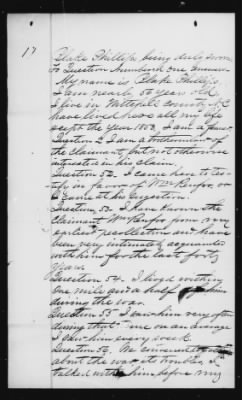 17
Blake Phillips being duly sworn
To Question numbered one answers
My name is Blake Phillips
I am nearly 56 year old
I live in County N.C
have lived have all my life
except the year 1853. I am a farmer
Question 2 I am a
the Claimant, but not otherwise
interested in his claim.
Question 52. I came here to tes-
tify in favor of Wm Renfro, or
I came at his suggestion.
Question 53. I have known the
Claimant Wm Renfro from my
earliest recollection and have
been very intimately acquainted
with him for the last forty
years.
Question 54. I lived within
one mile and a half of him
during the war.
Question 55 I saw him very often
during that time on an average
I saw him every week.
Question 56. We conversed
about the war, its troubles, I
talked with him before my